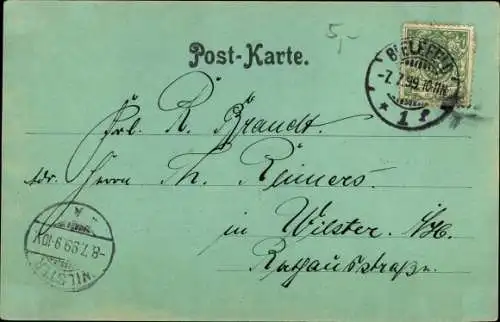 5,-
Post-Karte.
BIELEFELD
-7.7.99.10-11N.
* 1 f
Frl. R. Brandt.
Adr. Herrn Th. Reimers.
in Wilster. i/H.
Rathausstraße.
WILSTER
-8.7.99.9-10V
* A